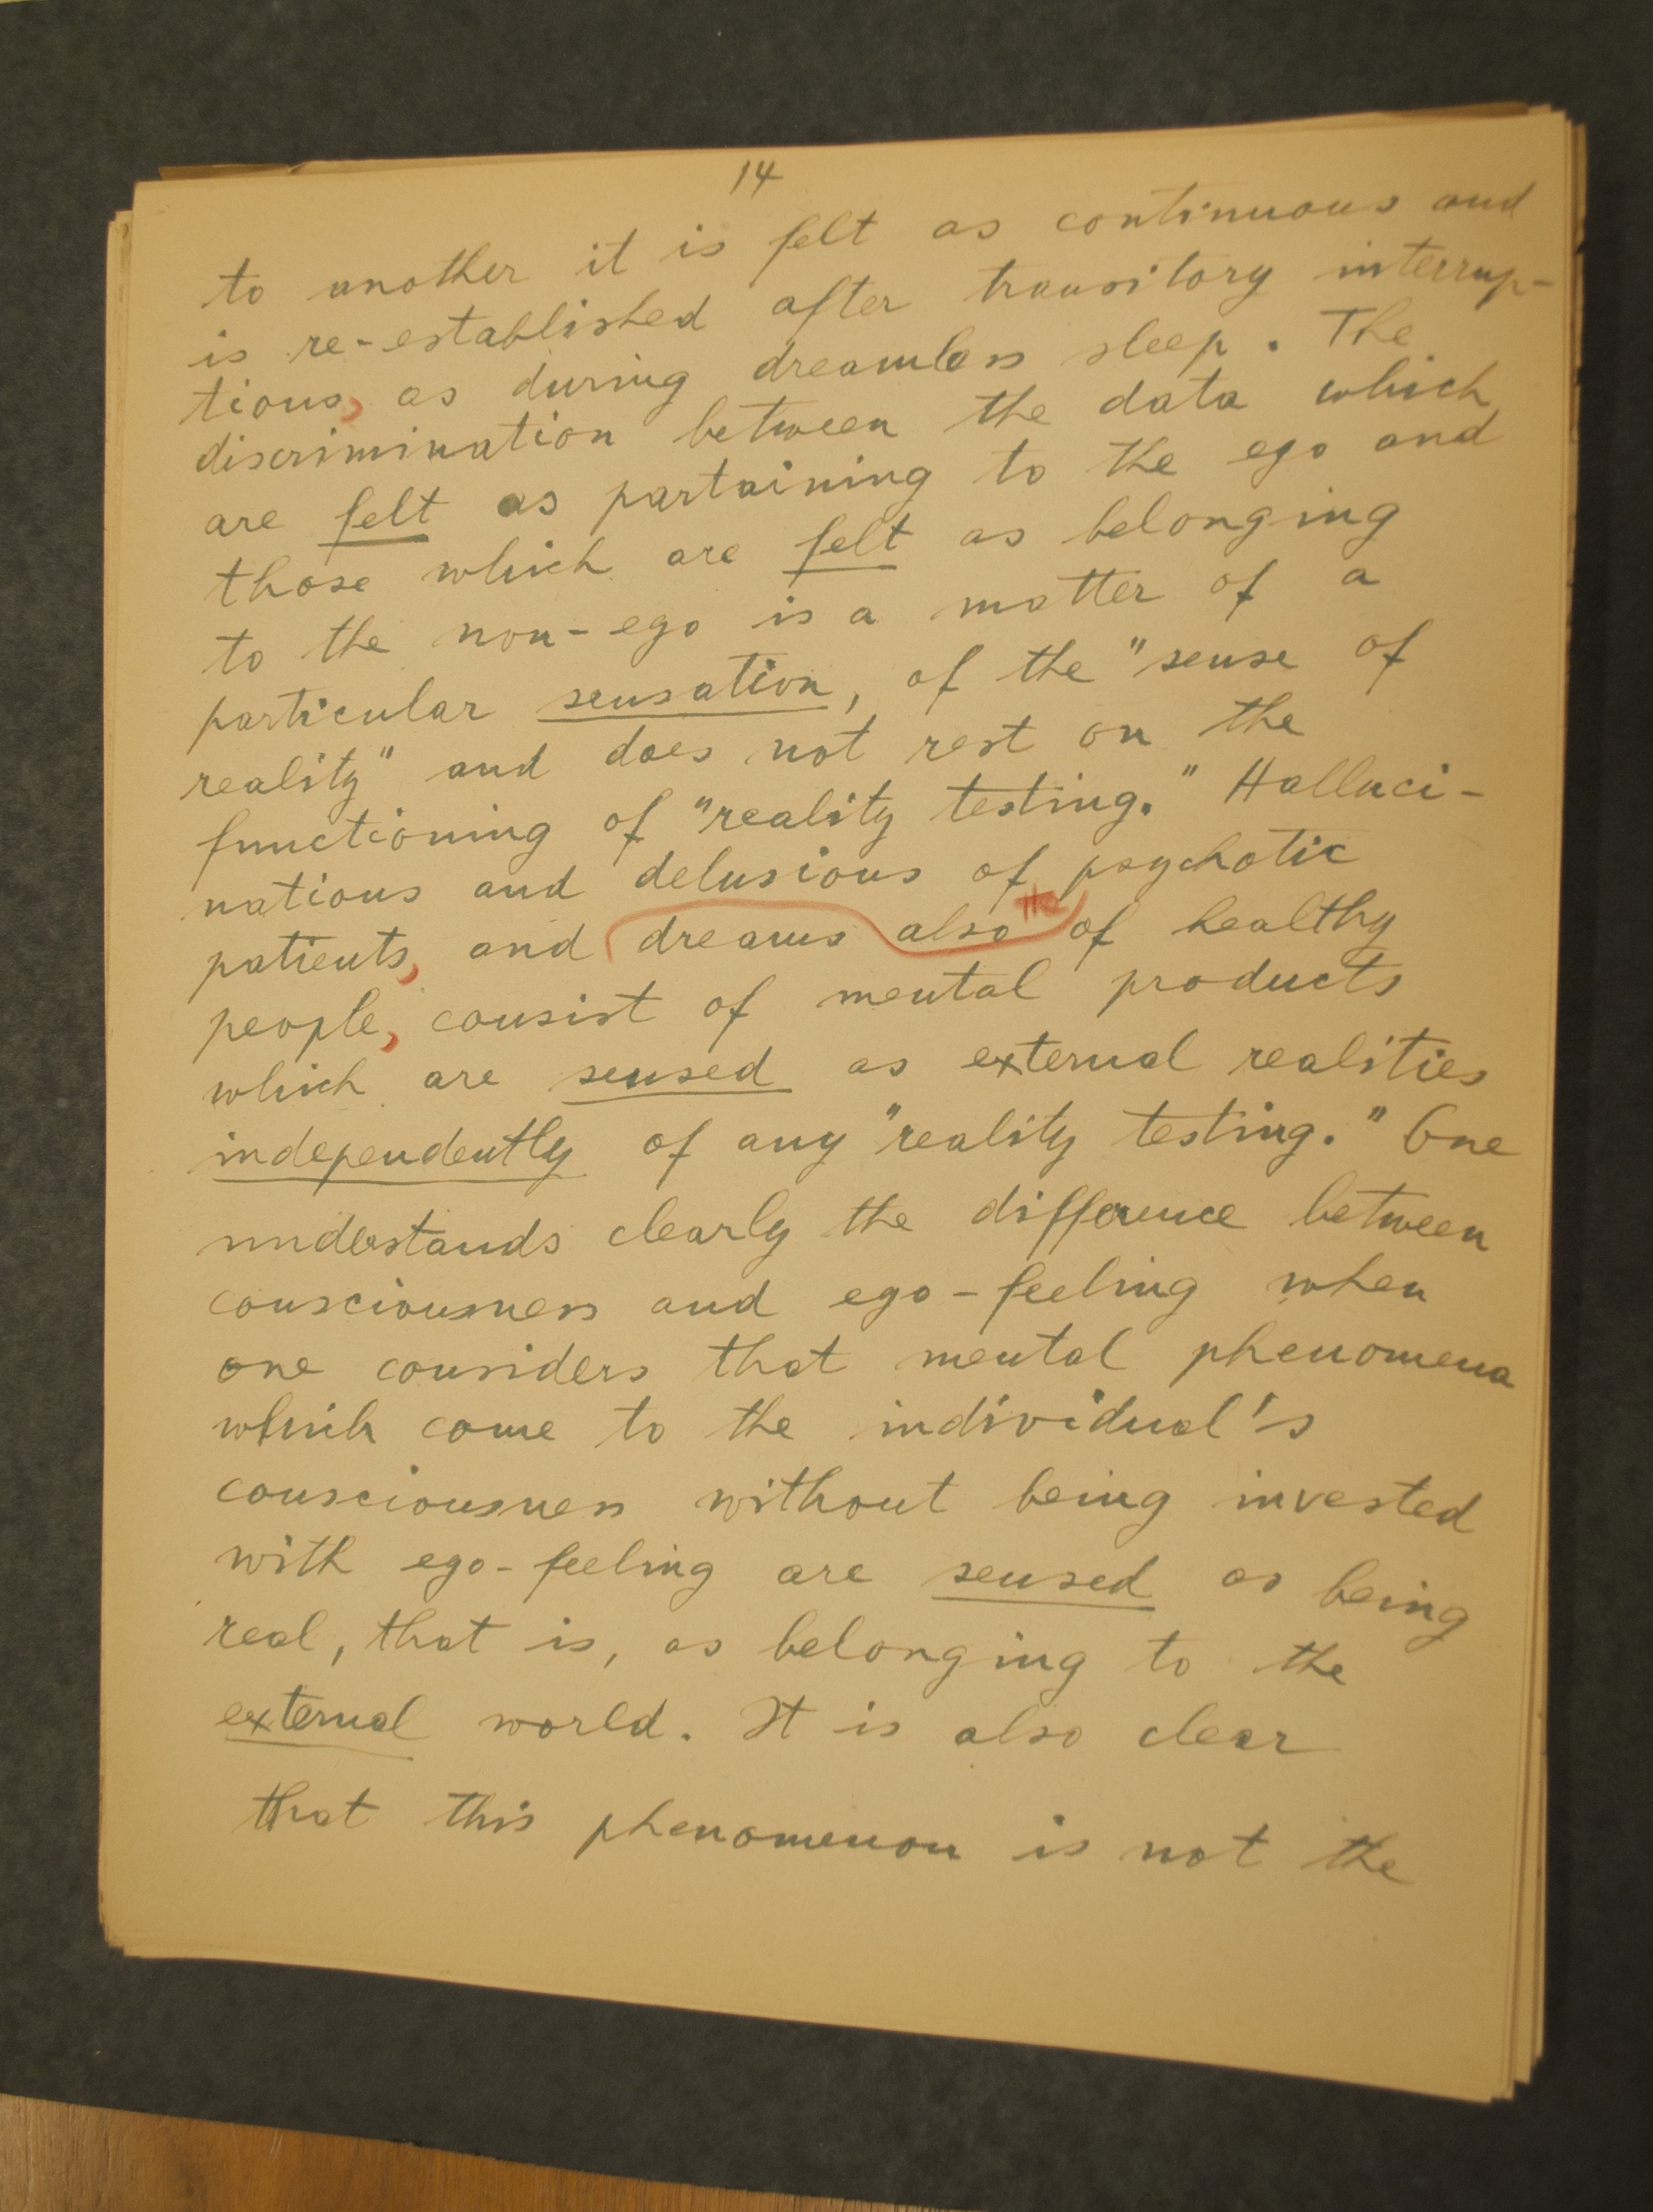 14
to another it is felt as continuous and
is re-established after transitory interrup-
tions, as during dreamless sleep. The
discrimination between the data which
are felt as partaining to the ego and
those which are felt as belonging
to the non-ego is a matter of a
particular sensation, of the "sense of
reality" and does not rest on the
functioning of "reality testing." Halluci-
nations and delusions of psychotic
patients, and dreams also of healthy
people, consist of mental products
which are sensed as external realities
independently of any "reality testing." One
understands clearly the difference between
consciousness and ego-feeling when
one considers that mental phenomena
which come to the individual's
consciousness without being invested
with ego-feeling are sensed as being
real, that is, as belonging to the
external world. It is also clear
that this phenomenon is not the